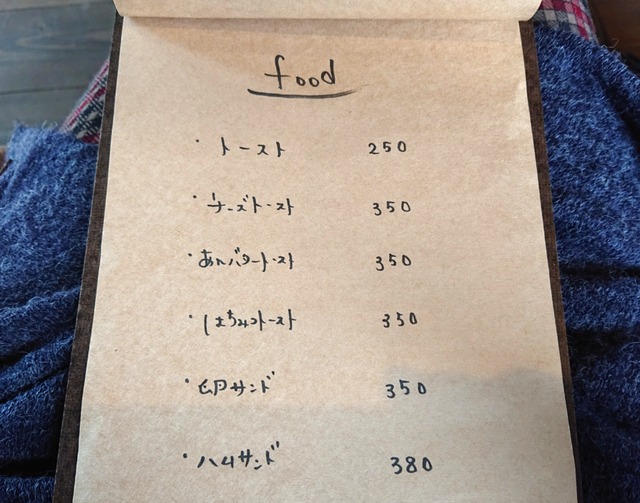 food
・トースト 250
・チーズトースト 350
・あんバタートースト 350
・はちみつトースト 350
・卵サンド 350
・ハムサンド 380